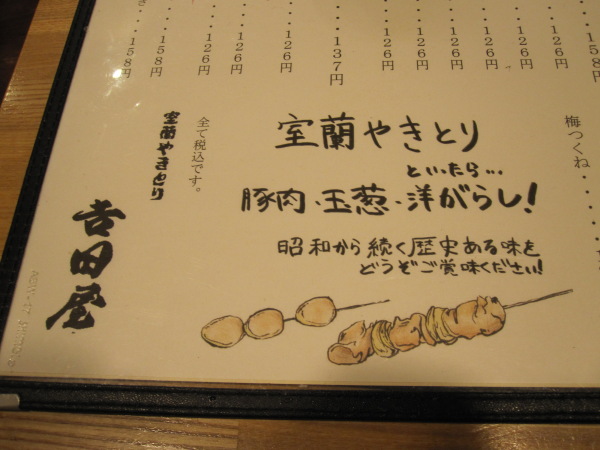 158円
126円
126円
126円
126円
126円
126円
137円
126円
126円
126円
158円
158円
梅つくね・・・・
室蘭やきとり
といたら…
豚肉、玉葱、洋がらし!
昭和から続く歴史ある味を
どうぞご賞味ください!
全て税込です。
室蘭やきとり
吉田屋